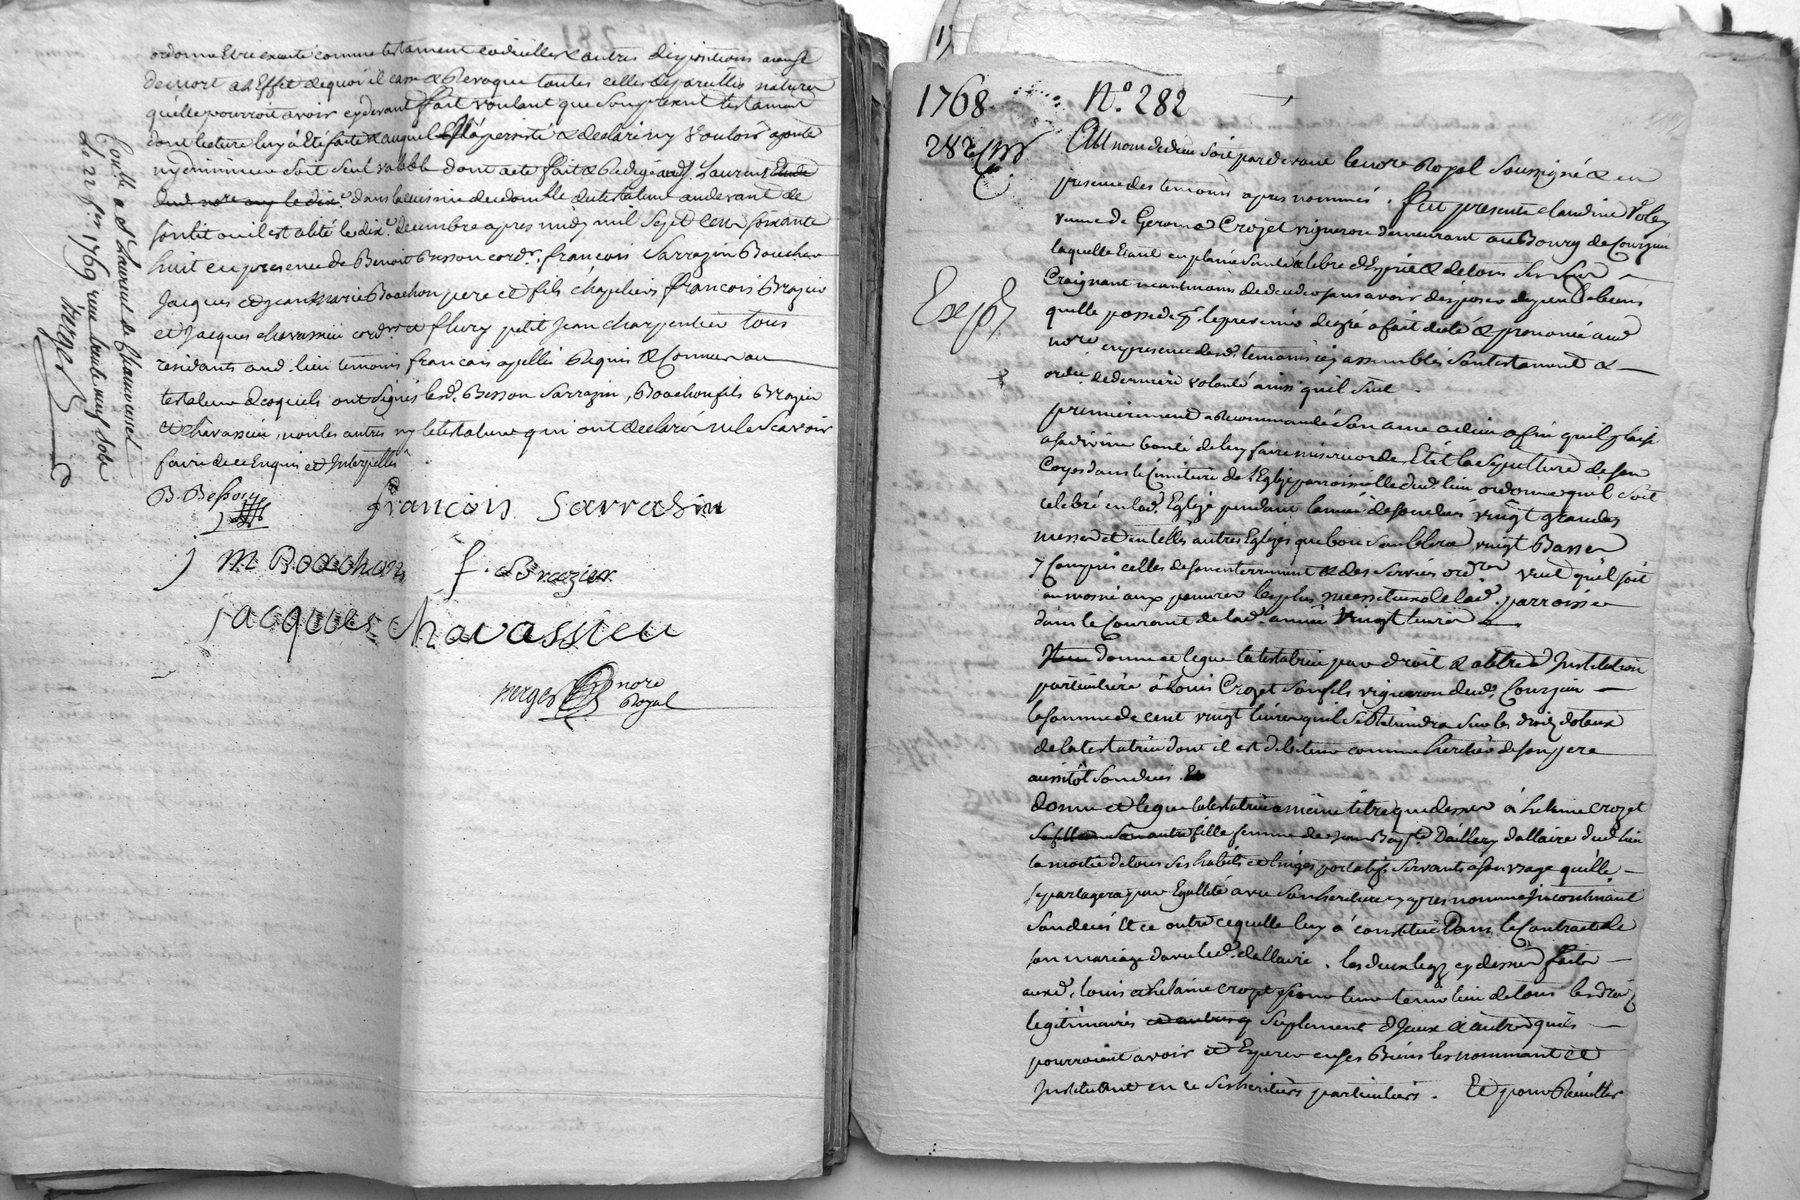 ordonne Etre executé comme testament codicille & autres dispositions a cause
de mort a l'Effet de quoy il casse & Revoque toutes celles de pareilles natures
qu'elle pourroit avoir cy devant fait voulant que son present testament
dont lecture luy à été faite & auquel il à persisté & declaré ny vouloir ajouté
ny diminuer soit seul valable dont acte fait & Redigé aud. S. Laurent
dans la cuisine du domicille du testateur au devant de
son lit ou il est alité le dix. decembre apres midy mil Sept Cent soixante
huit en presence de Benoit Besson cord.r françois Sarrazin Boucher
Jacques et jean Marie Bouchon pere et fils chapeliers françois Brazier
et Jacques chavassieu cord.r & fleury petit Jean charpentier tous
residants aud. lieu temoins francois apellés Requis & Connus au
testateur desquels ont signés led. Besson Sarrazin, Bouchon fils Brazier
et chavassieu, non les autres ny le testateur qui ont declaré ne le scavoir
faire de ce Enquis et Interpellés
B. Besson
françois Sarrasin
j m Bouchon
f. Brazier
jacques chavassieu
verger nore
Royal
Con.lle a S.t Laurent de Chamousset
le 22 f.er 1769 reçu trente neuf sols
verger
1768
N.o 282
282
Exp
Au nom de dieu soit par devant le nore Royal Soussigné & en
presence des temoins apres nommés. fut presente claudine
veuve de Gerome Crozet vigneron demeurant au Bourg de Courzieu
laquelle Etant en pleine santé & libre d'Esprit & de tous ses sens
Craignant neantmoins de deceder sans avoir disposer du peu de biens
quelle possede, le present a fait dicté & prononcé aud
nore en presence desd. temoins icy assemblés son testament &
ord.ce de derniere volonté ainsi qu'il suit.
premierement a Recommandé son ame a dieu afin quil plaise
a sa divine bonté de luy faire misericorde, Elit la sepulture de son
Corps dans le Cimitiere de l'Eglise parroissialle dud. lieu ordonne quil soit
celebré en lad. Eglise pendant l'année de son deces vingt grandes
messes et en telles autres Eglises que bon semblera vingt Basses
y Compris celles de son enterrement & des services ord.res veut qu'il soit
aumoné aux pauvres les plus necessiteux de lad. parroisse
dans le Courant de lad. année vingt livres
Item donne et legue la testatrice par droit & a titre d'Institution
particuliere à Louis Crozet son fils vigneron dud. Courzieu
la somme de cent vingt livres qu'il se Retiendra sur les droits dotaux
de la testatrice dont il est debiteur comme heritier de son pere
aussitôt son deces.
donne et legue la testatrice a même titre que dessus à helaine crozet
son autre fille femme de jean Bap.te Daillery dallaire dud. lieu
la moitié de tous ses habits et linges portatifs, servants à son usage qu'elle
se partagera par Egalité avec son heritiere cy apres nommée Incontinant
son decés Et ce outre ce quelle luy à constitué Dans le Contract de
son mariage d'avec led. dallaire. les deux legs cy dessus faits
auxd. Louis et helaine crozet pour leur tenir lieu de tous les droits
legitimaires suplement d'Iceux & autres qu'ils
pourroient avoir et Esperer en ses Biens les nommant et
Instituant en ce ses heritiers particuliers. Et pour Recueillir